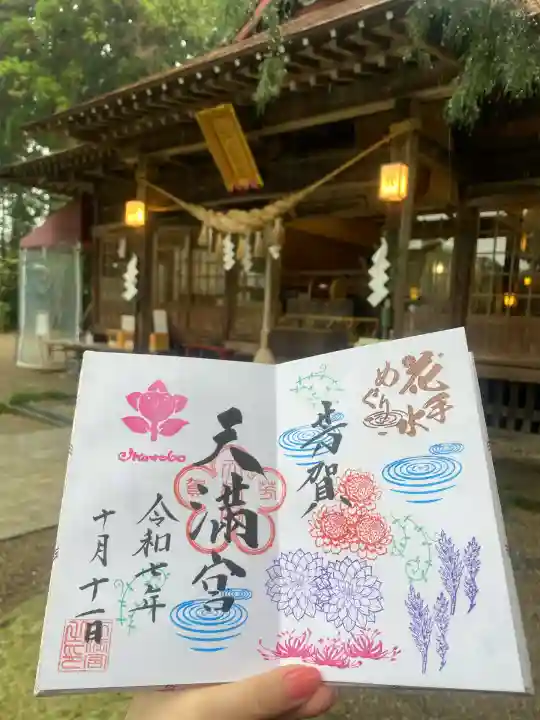 花手水
めぐり
芳賀
天満宮
令和七年
十月十一日